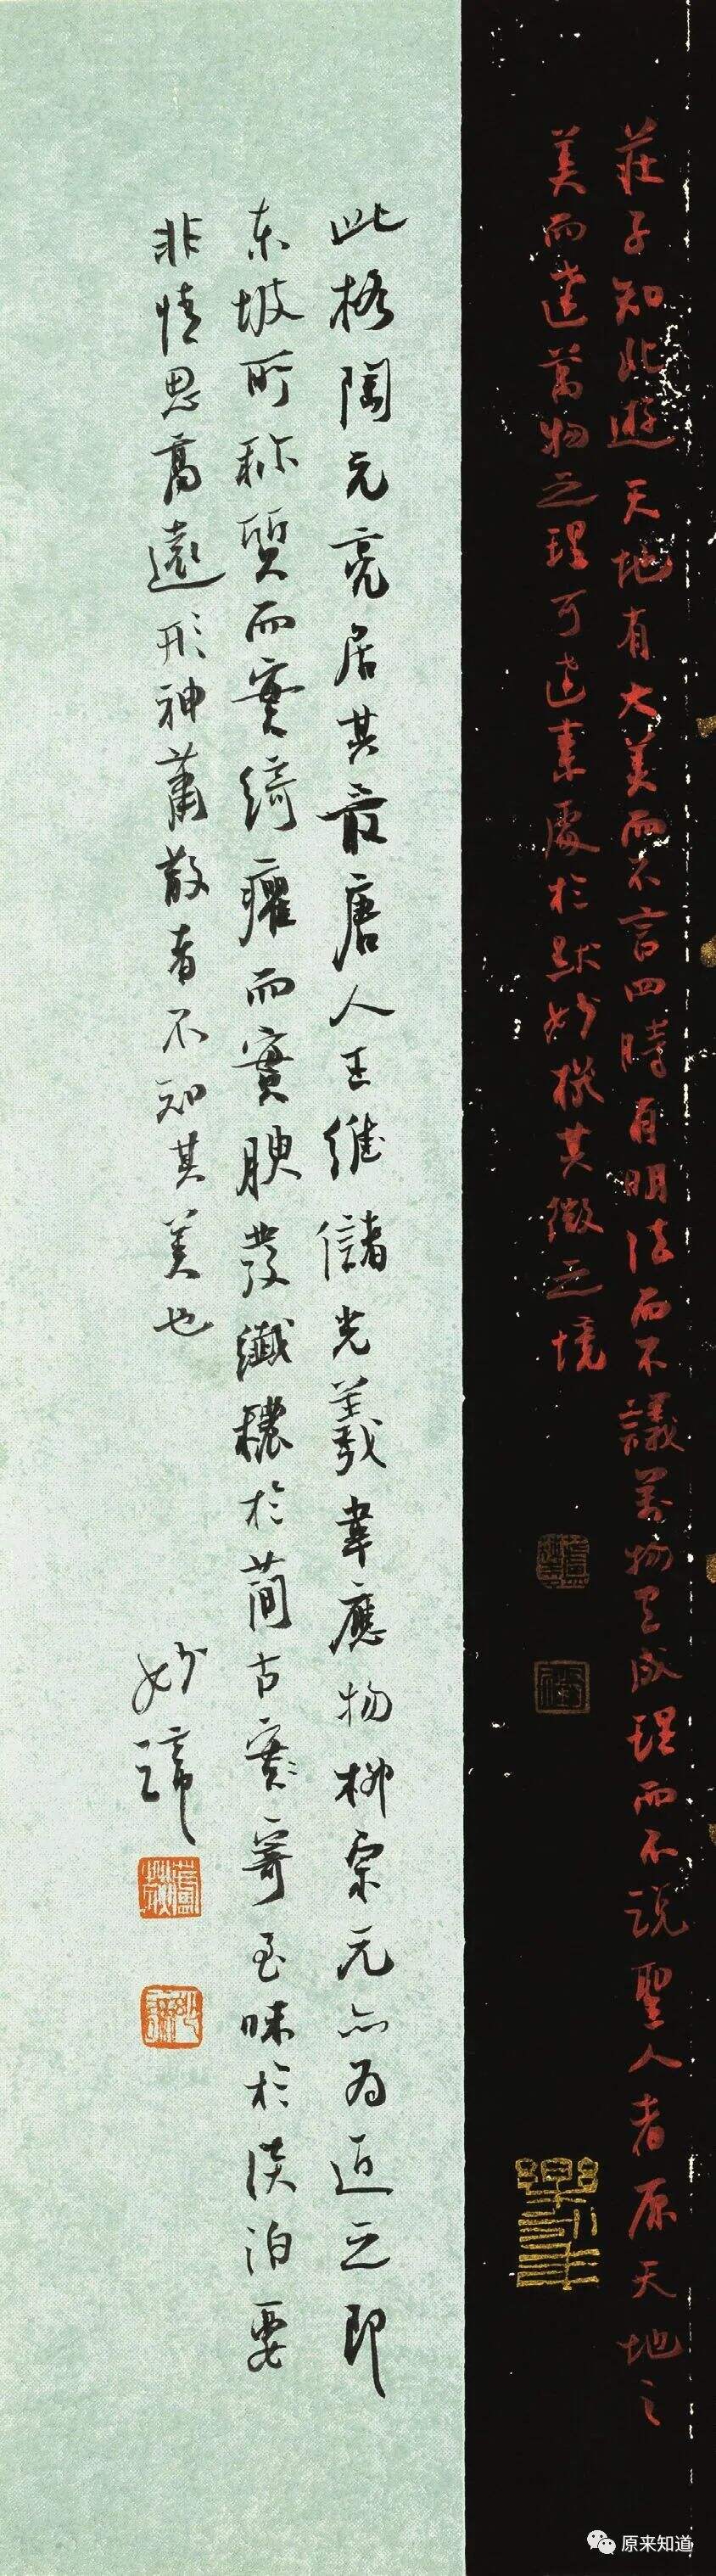 莊子知北遊天地有大美而不言四時有明法而不議萬物有成理而不說聖人者原天地之
美而達萬物之理可達素處於默妙機其微之境
此格陶元亮居其最唐人王維儲光羲韋應物柳宗元亦為近之即
東坡所称質而實綺癯而實腴發纖穠於蕳古寄至味於淡泊要
非情思高遠形神蕭散者不知其美也
妙諦
原来知道